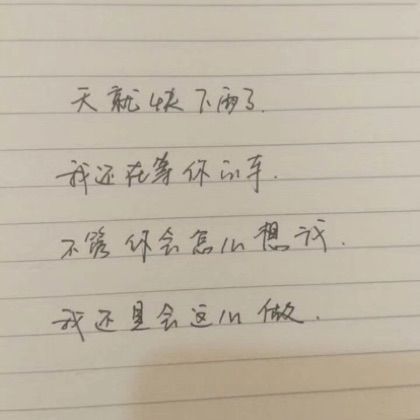 天就快下雨了.
我还在等你的车.
不管你会怎么想我.
我还是会这么做.